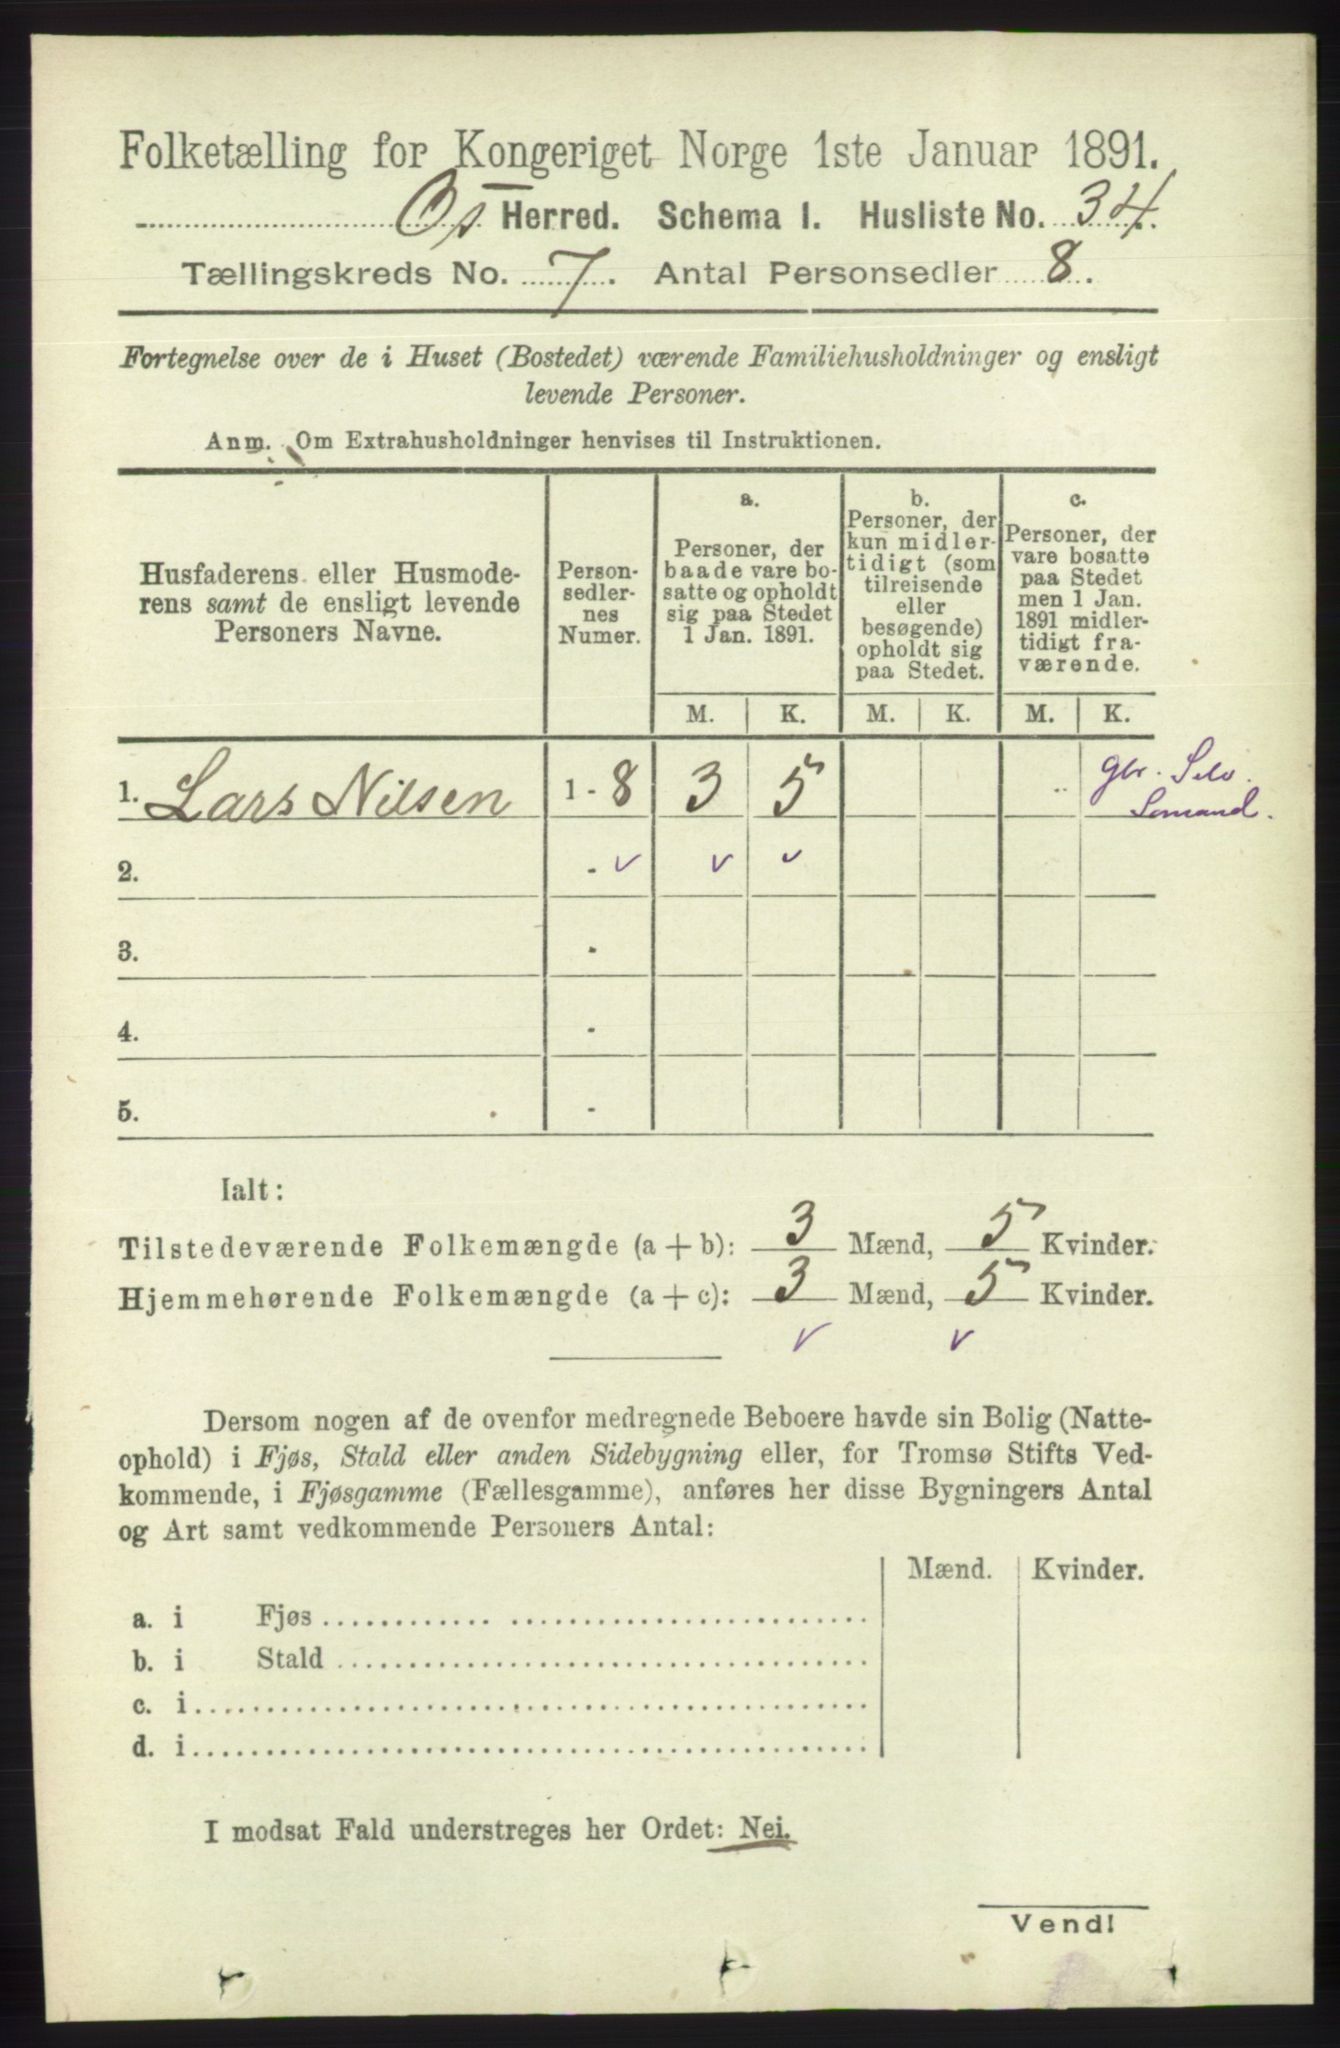 Folketælling for Kongeriget Norge 1ste Januar 1891.
Os Herred. Schema I. Husliste No. 34.
Tællingskreds No. 7. Antal Personsedler 8.
Fortegnelse over de i Huset (Bostedet) værende Familiehusholdninger og ensligt
levende Personer.
Anm. Om Extrahusholdninger henvises til Instruktionen.
Husfaderens eller Husmode-
rens samt de ensligt levende
Personers Navne.
Person-
sedler-
nes
Numer.
a.
Personer, der
baade vare bo-
satte og opholdt
sig paa Stedet
1 Jan. 1891.
b.
Personer, der
kun midler-
tidigt (som
tilreisende
eller
besøgende)
opholdt sig
paa Stedet.
c.
Personer, der
vare bosatte
paa Stedet
men 1 Jan.
1891 midler-
tidigt fra-
værende.
M. K. M. K. M. K.
1. Lars Nilsen 1 - 8 3 5
Gbr. Selv.
2. - v v v
3. -
4. -
5. -
Ialt:
Tilstedeværende Folkemængde (a + b): 3 Mænd, 5 Kvinder.
Hjemmehørende Folkemængde (a + c): 3 Mænd, 5 Kvinder.
v v
Dersom nogen af de ovenfor medregnede Beboere havde sin Bolig (Natte-
ophold) i Fjøs, Stald eller anden Sidebygning eller, for Tromsø Stifts Ved-
kommende, i Fjøsgamme (Fællesgamme), anføres her disse Bygningers Antal
og Art samt vedkommende Personers Antal:
Mænd. Kvinder.
a. i Fjøs
b. i Stald
c. i
d. i
I modsat Fald understreges her Ordet: Nei.
Vend!